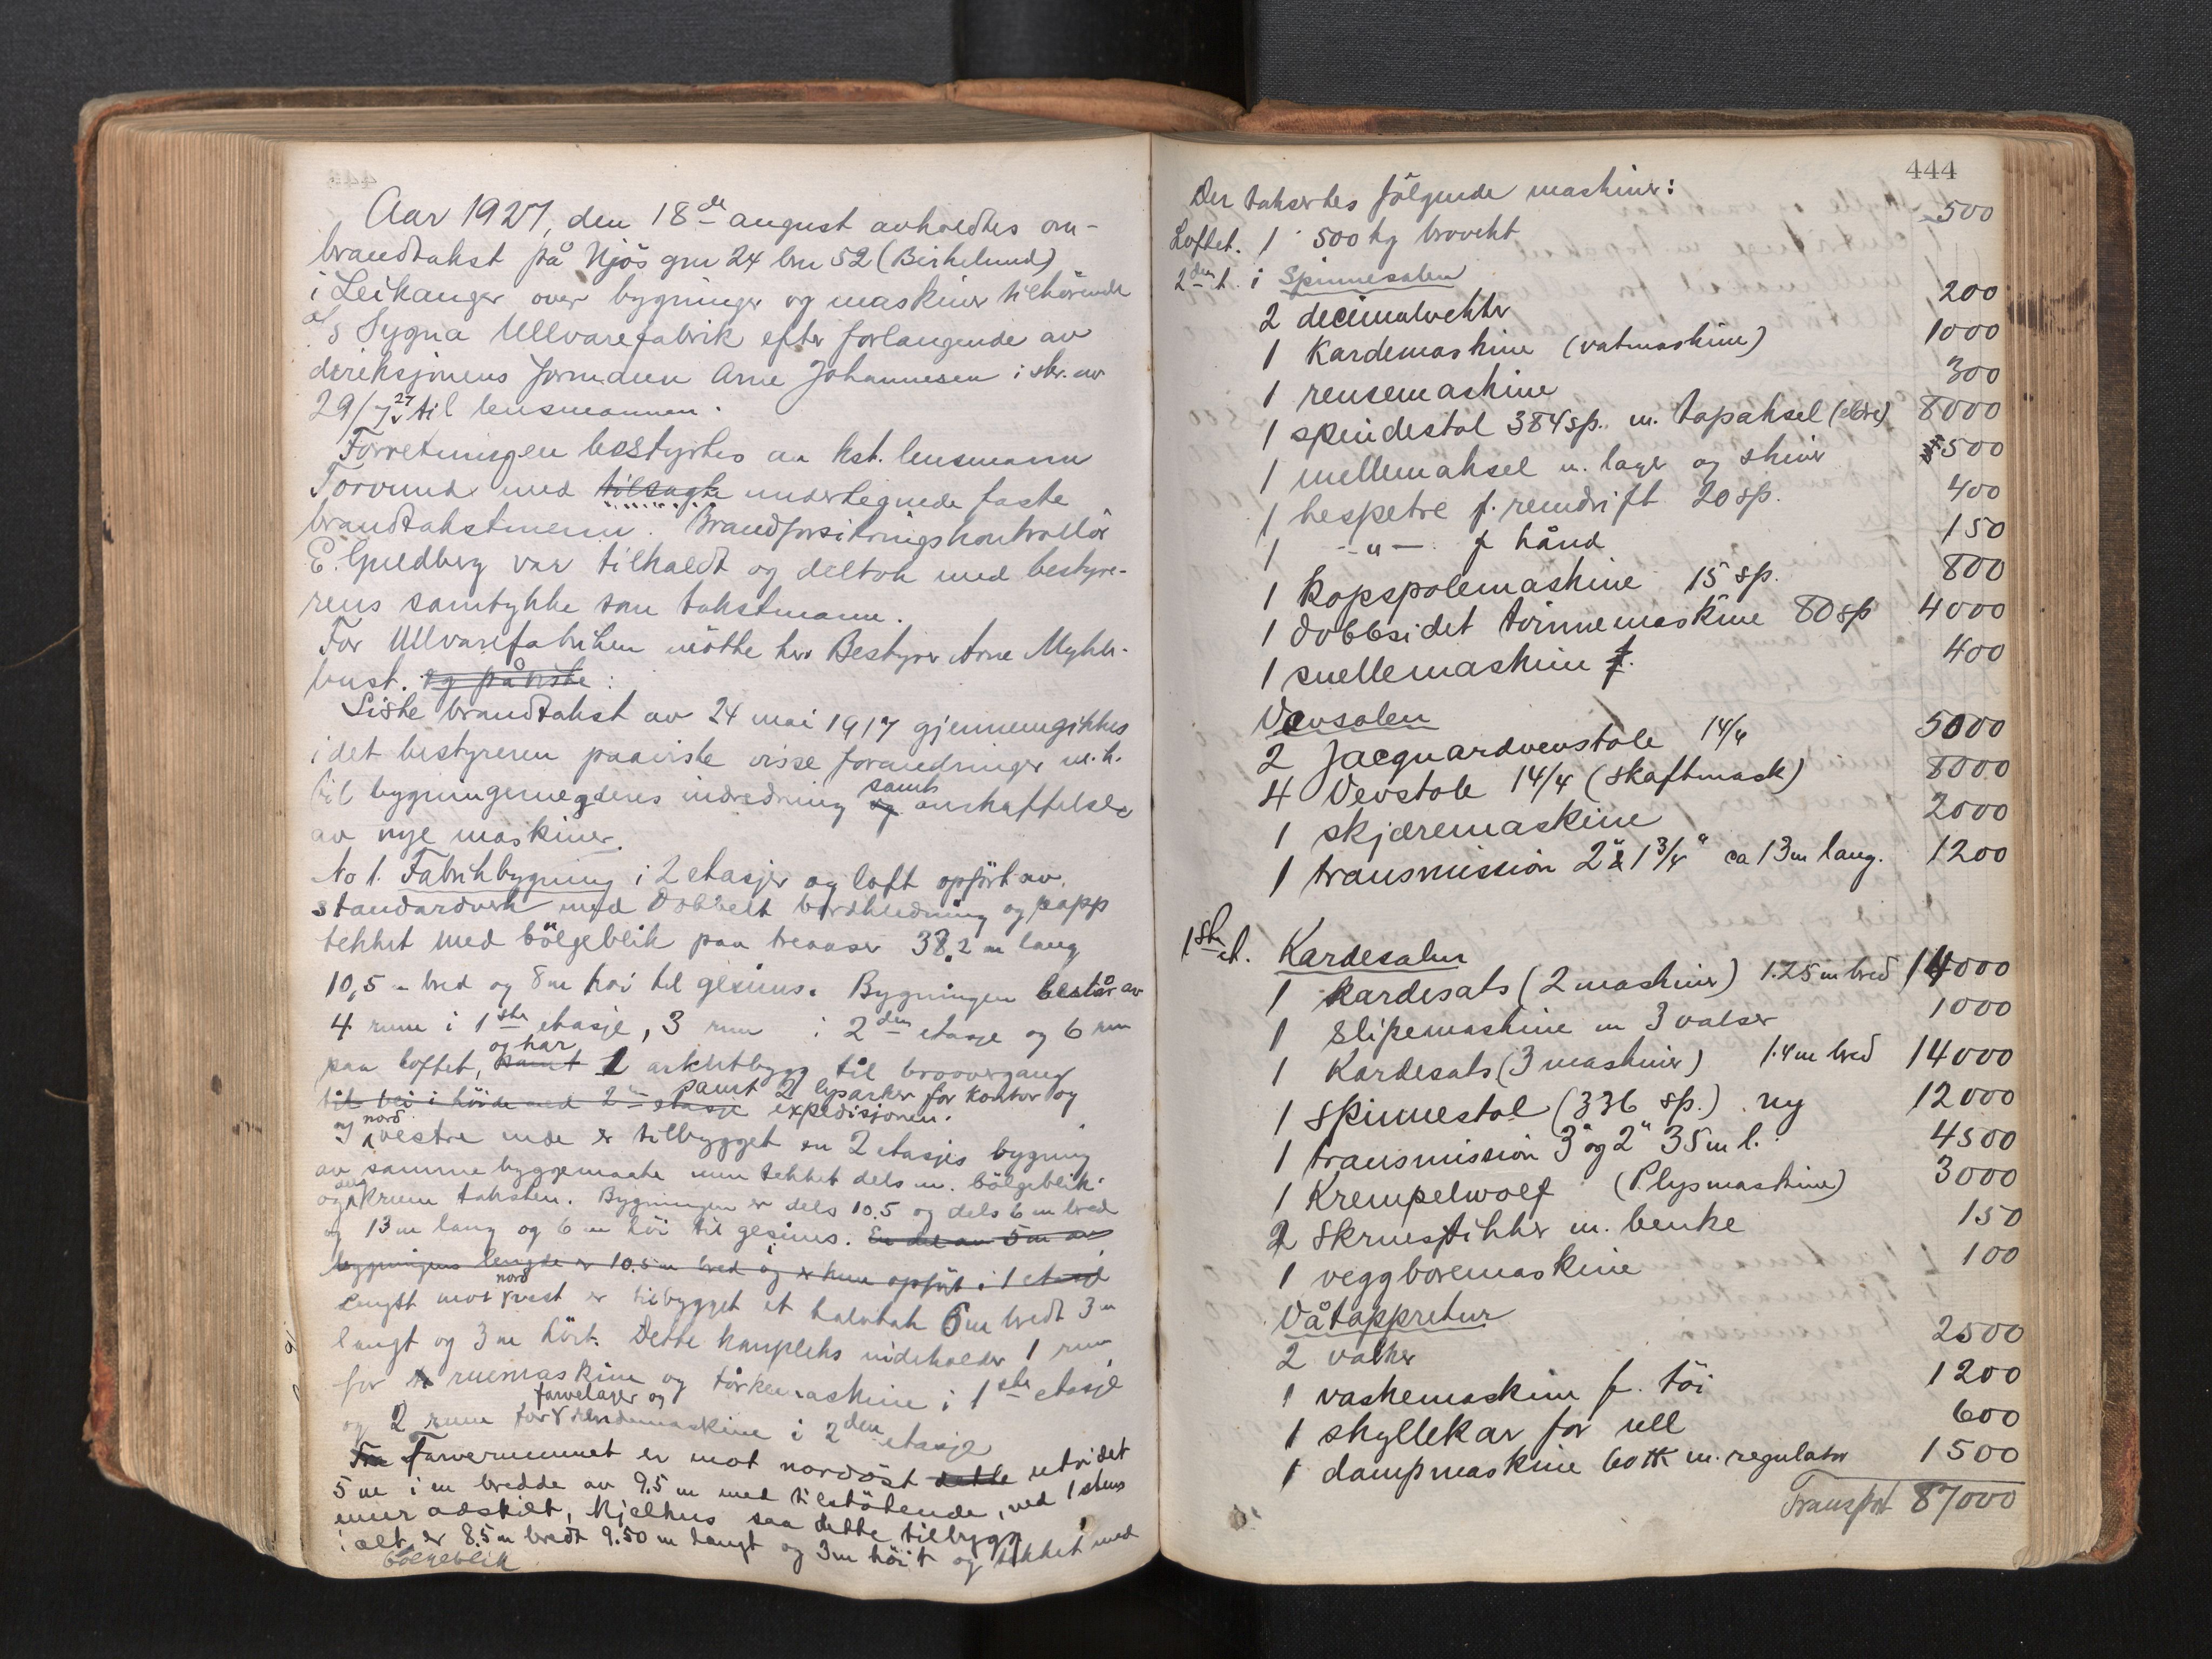 Aar 1927, den 18de august avholdtes om-
brandtakst på Njøs gnr 24 bnr 52 (Birkelund)
i Leikanger over bygninger og maskiner tilhørende
a/s Sygna Ullvarefabrik efter forlangende av
direksjonens formann Arne Johannesen i skr. av
29/7 27 til lensmannen.
Forretningen bestyrtes av kst. lensmann
Torvund med tilsagte undertegnede faste
brandtakstmenn. Brandforsikringskontrollør
E. Guldberg var tilkaldt og deltok med bestyre-
rens samtykke som takstmann.
For Ullvarefabriken møtte her Bestyrer Arne Mykle-
bust. og påviste:
Siste brandtakst av 24 mai 1917 gjennemgikkes
idet bestyreren paaviste visse forandringer m.h.
til bygningerne deres indredning og samt anskaffelse
av nye maskiner.
No 1. Fabrikbygning i 2 etasjer og loft opført av
standardverk med dobbelt bordkledning og papp
tekket med bølgeblik paa treaaser 38.2 m lang
10,5 m bred og 8 m høi til gesims. Bygningen består av
4 rum i 1ste etasje, 3 rum i 2den etasje og 6 rum
paa loftet, samt og har 1 arkitbygg til broovergang
til vei i höide med 2den etasje samt 2 lysarker for kontor og
expedisjonen.
I nord vestre ende er tilbygget en 2 etasjes bygning
av samme byggemaate men tekket dels m. bølgeblik
og krum taksten. Bygningen er dels 10.5 og dels 6 m bred
og 13 m lang og 6 m höi til gesims. En del av 5 m av
bygningens lengde er 10.5 m bred og er kun opført i 1 etasje
Lengst mot nord vest er tilbygget et halvtak 6 m bredt 3 m
langt og 3 m høit. Dette kompleks indeholder 1 rum
for ruemaskine og tørkemaskine i 1ste etasje
og 2 rum for farvelager og maskine i 2den etasje
Farverummet er mot nordøst dette utvidet
5 m i en bredde av 9.5 m med tilstøtende, ved 1 stens
mur adskilt, kjelhus saa dette tilbygg
i alt er 8.5 m bredt 9.50 m langt og 3 m höit og tekket med
bølgeblik
444
Der taksertes følgende maskiner:
Loftet. 1 500 kg brovekt 500
2den et. i Spinnesalen
2 decimalvekter 200
1 Kardemaskine (vatmaskine) 1000
1 rensemaskine 300
1 spindestol 384 sp. m. tapaksel (eldre) 8000
1 mellemaksel m. lager og skiver 500
1 hespetre f. remdrift 20 sp. 400
1 -"- f hånd 150
1 kopspolemaskine 15 sp. 800
1 dobbsidet tvinnemaskine 80 sp 4000
1 snellemaskine f. 400
Vevsalen
2 Jacquardvevstole 14/4 5000
4 Vevstole 14/4 (skaftmask) 8000
1 skjæremaskine 2000
1 transmission 2" & 1 3/4" ca 13 m lang. 1200
1ste et. Kardesalen
1 Kardesats (2 maskiner) 1.25 m bred 14000
1 slipemaskine m 3 valser 1000
1 Kardesats (3 maskiner) 1.4 m bred 14000
1 Spinnestol (336 sp.) ny 12000
1 transmission 3" og 2" 35 m l. 4500
1 Krempelwolf (Plysmaskine) 3000
2 skruestikker m. benke 150
1 veggboremaskine 100
Våtappretur
2 valker 2500
1 vaskemaskine f. töi 1200
1 skyllekar for ull 600
1 dampmaskine 60 HK m. regulator 1500
Transport 87000